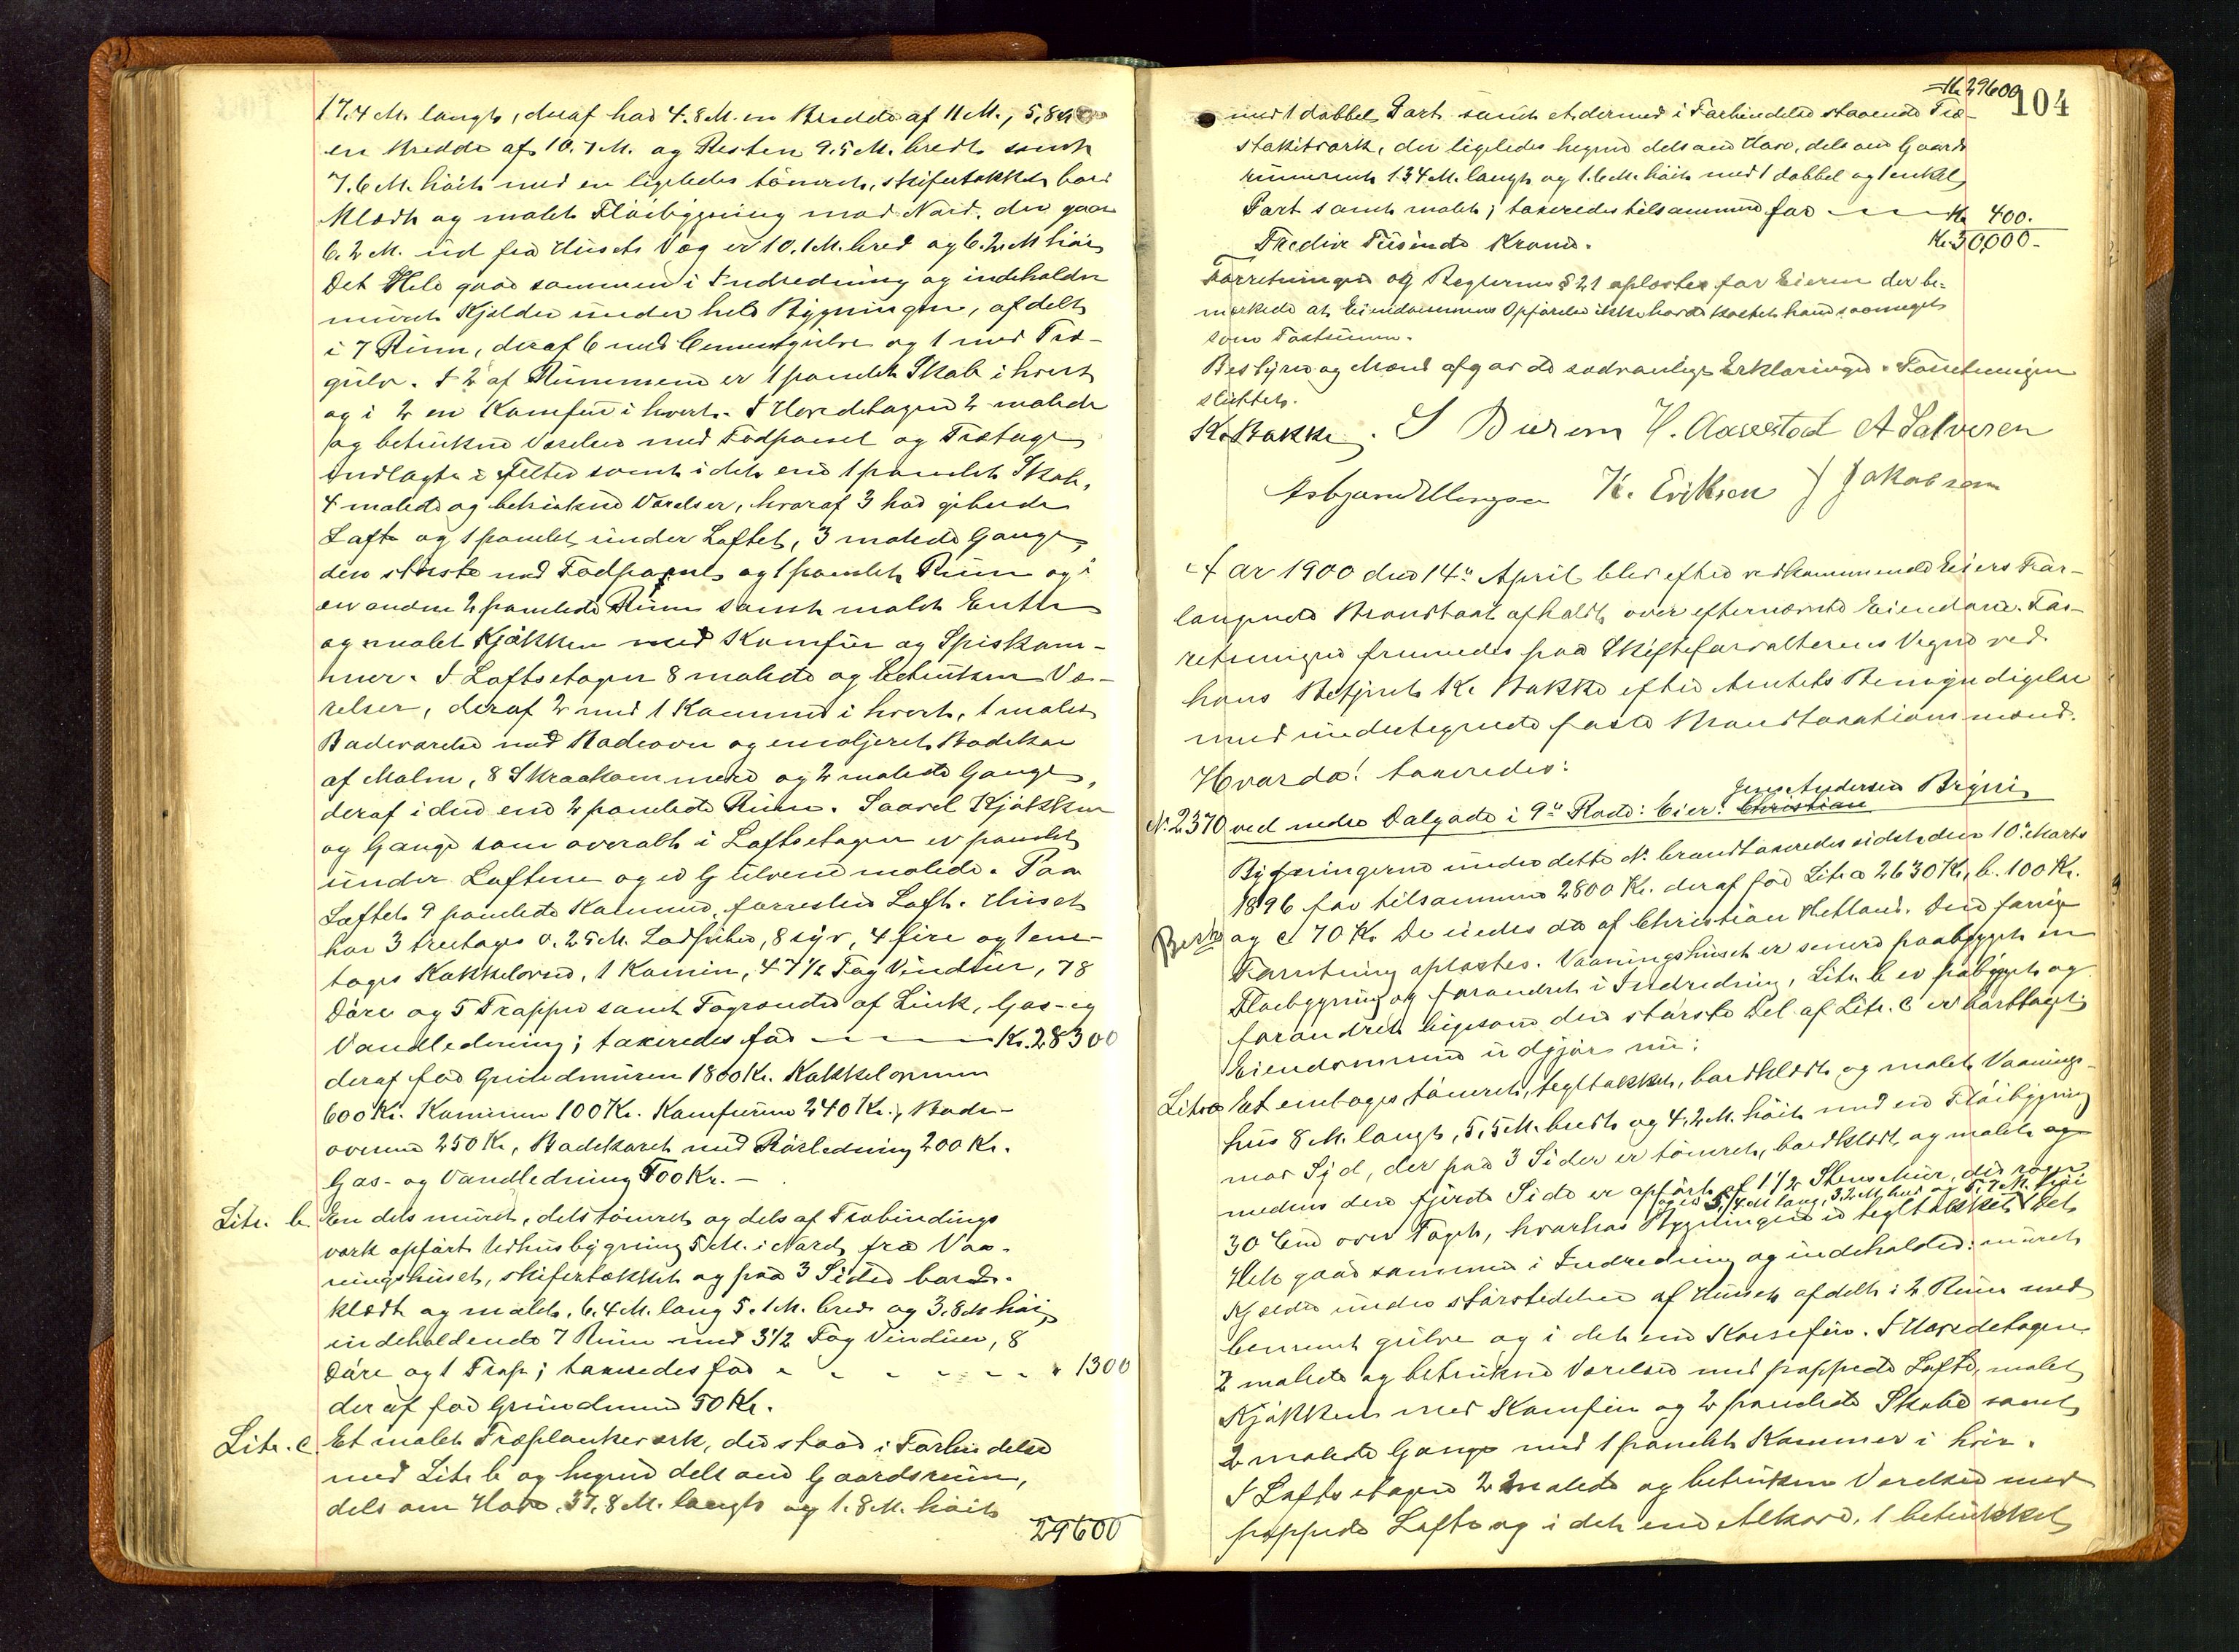 17.4 M. langt, deraf har 4.8 M. en Bredde af 11 M., 5,8 M
en Bredde af 10.7 M. og Resten 9.5 M. bredt samt
7.6 M. høit med en ligeledes tømret, skifertækket bord
klædt og malet Fløibygning mod Nord, der gaar
6.2 M. ud fra Husets Væg er 10.1 M. bred og 6.2 M høi
Det Hele gaar sammen i Indredning og indeholder
muret Kjelder under hele Bygningen, afdelt
i 7 Rum, deraf 6 med Cementgulve og 1 med Træ-
gulv. I 2 af Rummene er 1 panelet Skab i hvert
og i 2 en Komfur i hvert. I Hovedetagen 2 malede
og betrukne Værelser med Fodpanel og Trætage
indlagte i Felter samt i det ene 1 panelet Skab,
4 malede og betrukne Værelser, hvoraf 3 har gibsede
Loft og 1 panelet under Loftet, 3 malede Gange,
den største med Fodpanel og 1 panelet Rum og i
en anden 2 panelede Rum samt malet Entre
og malet Kjøkken med Komfur og Spiskam-
mer. I Loftsetagen 8 malede og betrukne Væ-
relser, deraf 2 med 1 Kammer i hvert, 1 malet
Badeværelse med Badeovn og emaljeret Badekar
af Malm, 8 Skraakammere og 2 malede Gange,
deraf i den ene 2 panelede Rum. Saavel Kjøkken
og Gange som overalt i Loftsetagen er panelet
under Loftene og er Gulvene malede. Paa
Loftet 9 panelede Kammer, forresten Loft. Huset
har 3 treetages 0.25 M. Ladpiber, 8 syv, 4 fire og 1 een-
tages Kakkelovne, 1 Kamin, 47 1/2 Fag Vinduer, 78
Døre og 5 Trapper samt Tagrender af Zink, Gas- og
Vandledning; taxeredes for — — — Kr. 28300
deraf for Grundmuren 1800 Kr. Kakkelovnene
600 Kr. Kaminen 100 Kr. Komfurene 240 Kr., Bade-
ovnene 250 Kr, Badekaret med Rørledning 200 Kr.
Gas- og Vandledning 500 Kr. —
Litr. b. En dels muret, dels tømret og dels af Træbindings
værk opført Udhusbygning 5 M. i Nord fra Vaa-
ningshuset, skifertækket og paa 3 Sider bord-
klædt og malet, 6.4 M. lang 5.1 M. bred og 3.8 M høi,
indeholdende 7 Rum med 3 1/2 Fag Vinduer, 8
Døre og 1 Trap; taxeredes for - - - - - - " 1300
deraf for Grundmuren 50 Kr.
Litr. c. Et malet Træplankeværk, der staar i Forbindelse
med Litr b og hegner dels om Gaardsrum,
dels om Have. 37.8 M. langt og 1.8 M. høit
29600
Kr 29600
104
med 1 dobbel Port samt et dermed i Forbindelse staaende Træ-
stakitværk, der ligeledes hegner dels om Have, dels om Gaards
rummet 134 M. langt og 1.6 M. høit med 1 dobbel og 1 enkel
Port samt malet; taxeredes tilsammen for — — Kr 400.
Tredive Tusinde Kroner.
Kr. 30,000 -
Forretningen og Reglernes § 21 oplæstes for Eieren der be-
mærkede at Eiendommens Opførelse ikke havde kostet ham saameget
som Taxtsumen.
Bestyrer og Mænd afgav de sædvanlige Erklæringer. Forretningen
sluttet.
K. Bakke. S Burem H. Aarrestad A Salvesen
Asbjørn Ellingsen K. Eriksen J Jakobsen
Aar 1900 den 14de April blev efter vedkommende Eiers For-
langende Brandtaxt afholdt over efternævnte Eiendom. For-
retningen fremmedes paa Skifteforvalterens Vegne ved
hans Betjent K. Bakke efter Amtets Bemyndigelse
med undertegnede faste Brandtaxationsmænd.
Hvorda! taxeredes:
Jens Andersen Bryni
No 2370 ved nedre Dalgade i 9de Rode: Eier: Christian
Bygningerne under dette No. brandtaxeredes sidst den 10de Marts
1896 for tilsammen 2800 Kr. deraf for Litr a 2630 Kr, b. 100 Kr.
Besk og c 70 Kr. De eiedes da af Christian Hetland. Den forrige
Forretning oplæstes. Vaaningshuset er senere paabygget en
Fløibygning og forandret i Indredning, Litr. b er paabygget og
forandret ligesom den største Del af Litr. C er borttaget.
Eiendommen udgjør nu:
Litr a Et eentages tømret, tegltækket, bordklædt og malet Vaanings-
hus 8 M. langt, 5,5 M. bredt og 4.2 M. høit med en Fløibygning
mod Syd, der paa 3 Sider er tømret, bordklædt og malet og
medens den fjerde Side er opført af 1 1/2 Stens Mur, der rager
og er 5,4 M lang, 3.2 M. bred og 5,7 M. høi
30 Cm over Taget, hvorhos Bygningen er tegltækket. Det
Hele gaar sammen i Indredning og indeholder: muret
Kjelder under størstedelen af Huset afdelt i 2 Rum med
Cement gulve og i det ene Komfur. I Hovedetagen
2 malede og betrukne Værelser med pappede Lofte, malet
Kjøkken med Komfur og 2 panelede Skabe samt
2 malede Gange med 1 panelet Kammer i hver.
I Loftsetagen 2 malede og betrukne Værelser med
pappede Lofte og i det ene Alkove, 1 betrukket